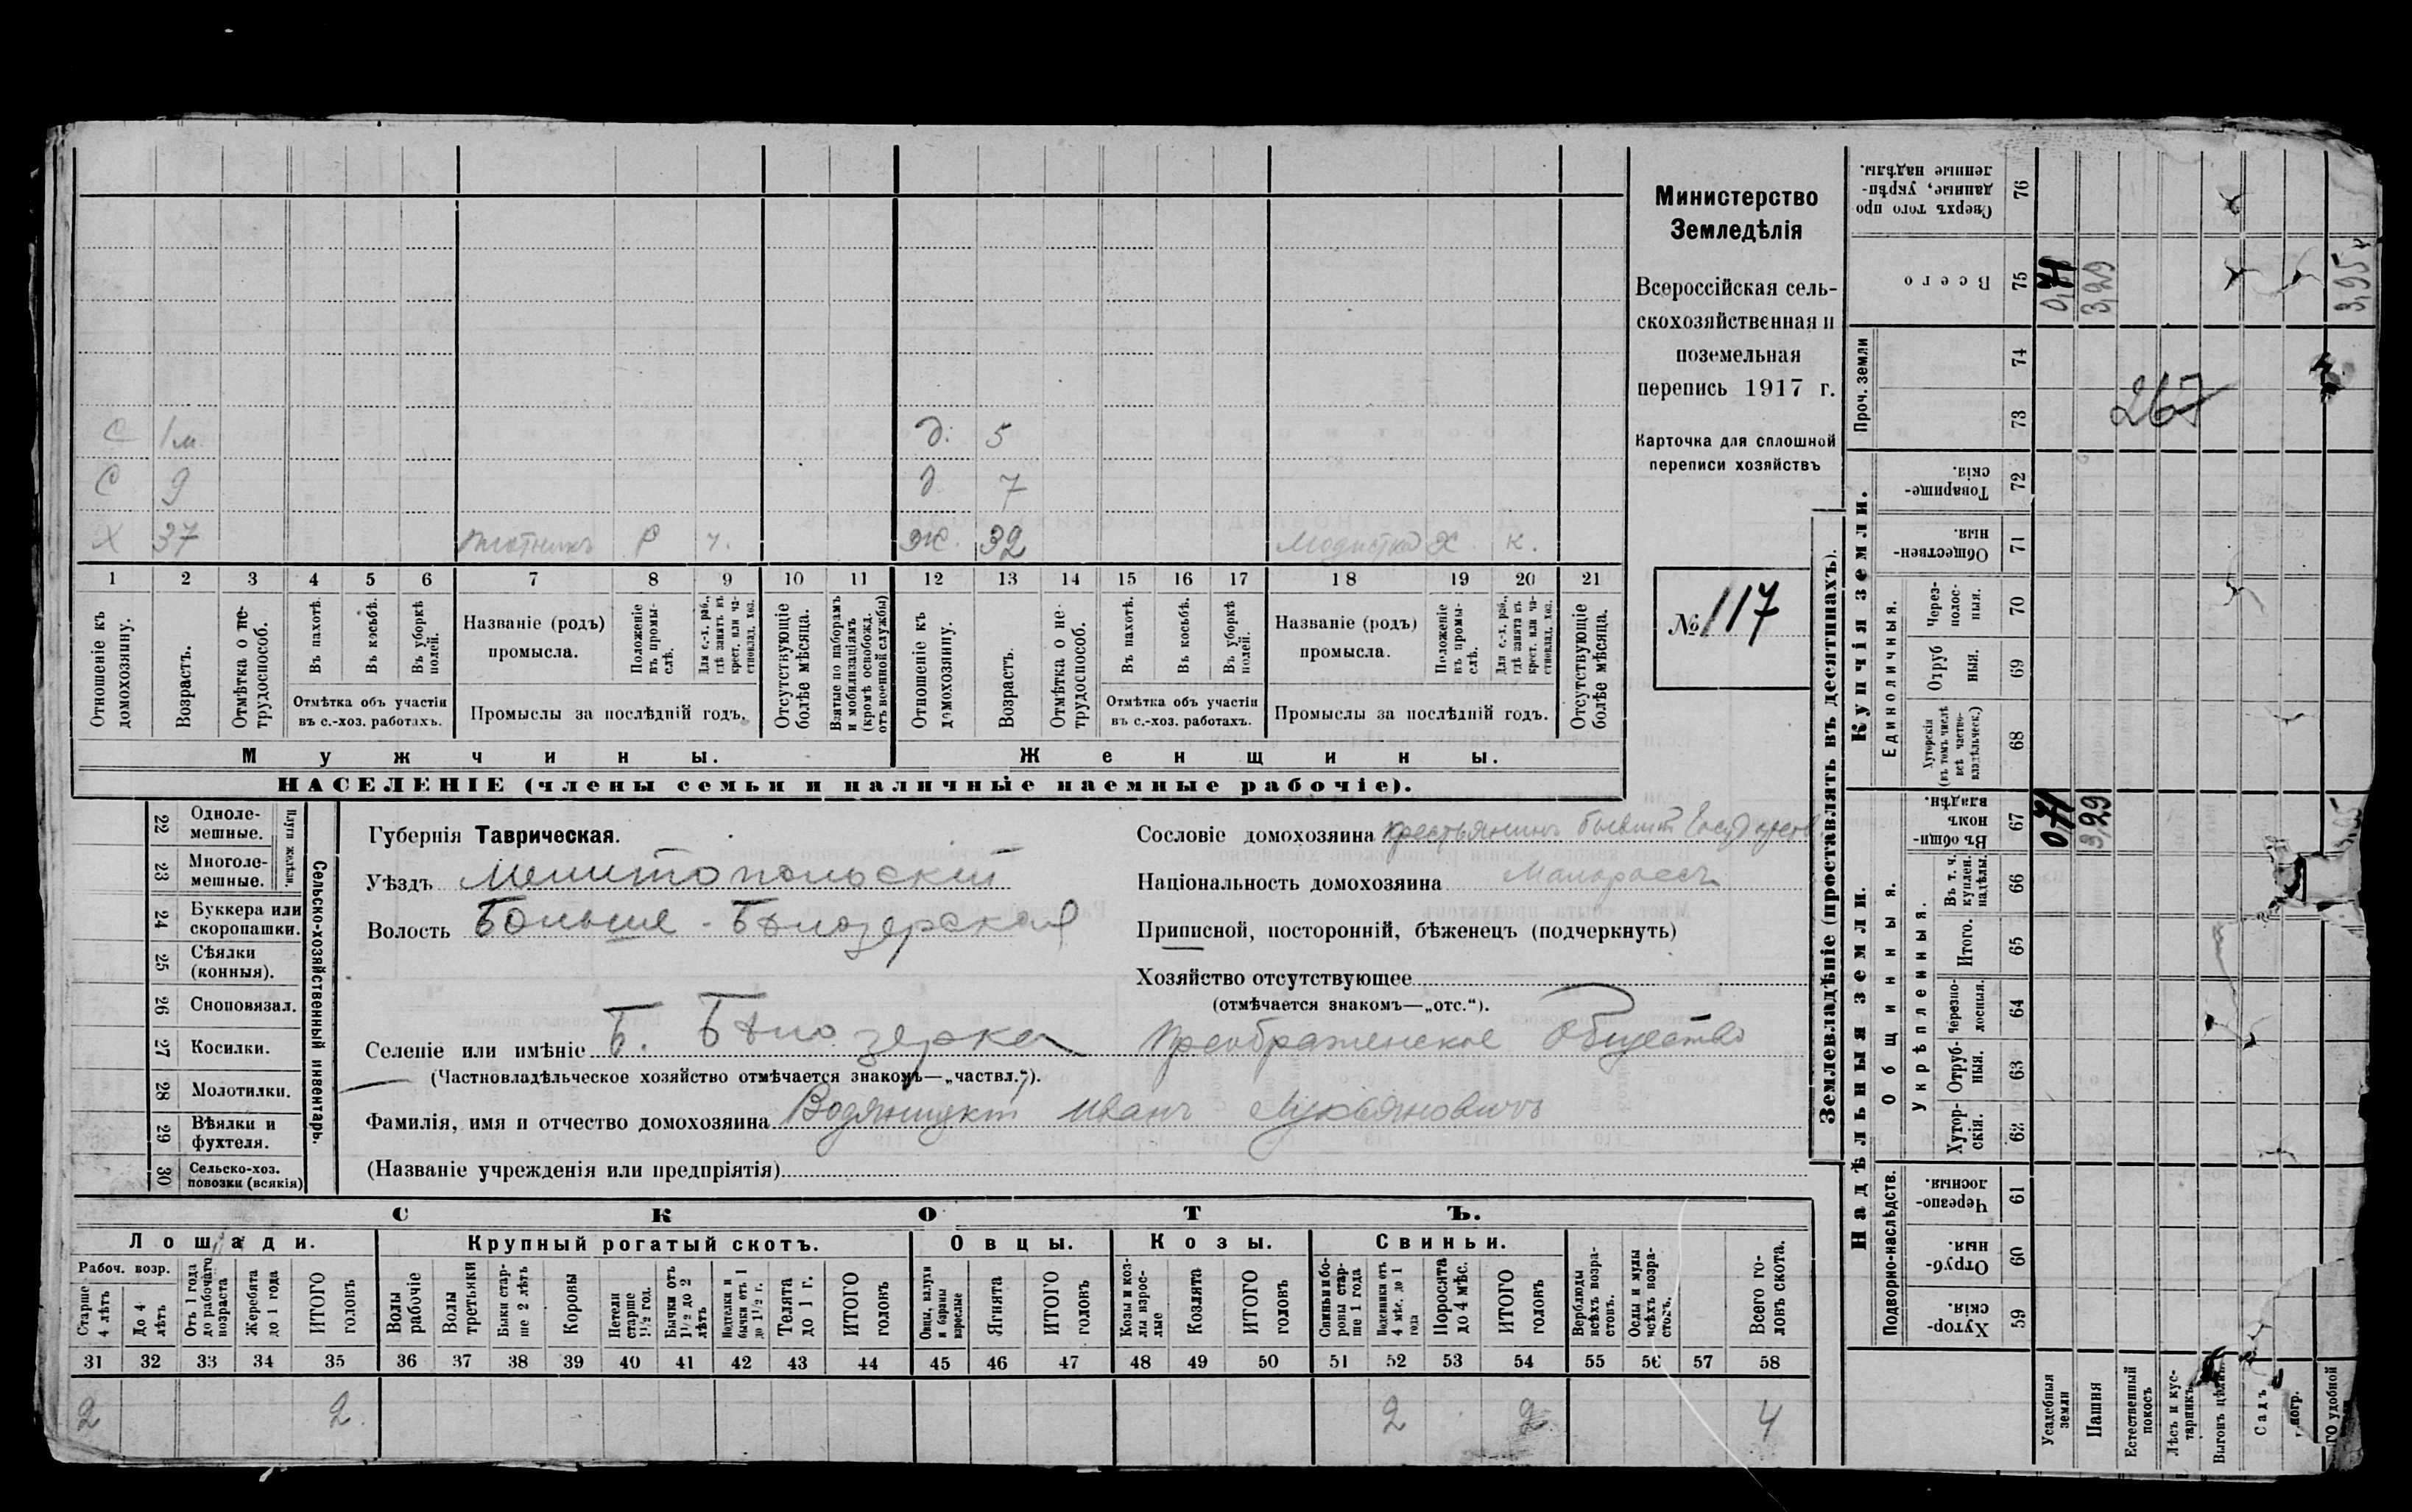 Министерство
Земледѣлія
Всероссійская сель-
скохозяйственная и
поземельная
перепись 1917 г.
Карточка для сплошной
переписи хозяйствъ
№ 117
С 1 м. д. 5
С 9 д. 7
Х 37 плотникъ Р ч. Ж. 32 модистка Х. к.
1 2 3 4 5 6 7 8 9 10 11 12 13 14 15 16 17 18 19 20 21
Отношеніе къ домохозяину.
Возрастъ.
Отмѣтка о не-трудоспособ.
Въ пахотѣ.
Въ косьбѣ.
Въ уборкѣ полей.
Отмѣтка объ участіи
въ с.-хоз. работахъ.
Названіе (родъ)
промысла.
Положеніе въ промы-слѣ.
Для с.-х. раб., гдѣ занятъ въ крест. или ча-стновлад. хоз.
Промыслы за послѣдній годъ.
Отсутствующіе болѣе мѣсяца.
Взятые по наборамъ и мобилизаціямъ (кромѣ освобожд. отъ военной службы)
Отношеніе къ домохозяину.
Возрастъ.
Отмѣтка о не-трудоспособ.
Въ пахотѣ.
Въ косьбѣ.
Въ уборкѣ полей.
Отмѣтка объ участіи
въ с.-хоз. работахъ.
Названіе (родъ)
промысла.
Положеніе въ промы-слѣ.
Для с.-х. раб., гдѣ занята въ крест. или ча-стновлад. хоз.
Промыслы за послѣдній годъ.
Отсутствующіе болѣе мѣсяца.
Мужчины. Женщины.
НАСЕЛЕНІЕ (члены семьи и наличные наемные рабочіе).
22 Одноле-мешные.
23 Многоле-мешные.
Плуги желѣзн.
24 Буккера или скоропашки.
25 Сѣялки (конныя).
26 Сноповязал.
27 Косилки.
28 Молотилки.
29 Вѣялки и фухтеля.
30 Сельско-хоз. повозки (всякія)
Сельско-хозяйственный инвентарь.
Губернія Таврическая.
Уѣздъ Мелитопольскій
Волость Больше-Бѣлозерская
Селеніе или имѣніе Б. Бѣлозерка Преображенское Общество
(Частновладѣльческое хозяйство отмѣчается знакомъ—„частвл.“).
Фамилія, имя и отчество домохозяина Иванъ Лукьяновичъ
(Названіе учрежденія или предпріятія)
Сословіе домохозяина крестьянинъ бывшій Государств
Національность домохозяина Малороссъ
Приписной, посторонній, бѣженецъ (подчеркнуть)
Хозяйство отсутствующее
(отмѣчается знакомъ—„отс.“).
СКОТЪ.
Лошади. Крупный рогатый скотъ. Овцы. Козы. Свиньи.
Рабоч. возр.
Старше 4 лѣтъ
До 4 лѣтъ
Отъ 1 года до рабочаго возраста
Жеребята до 1 года
ИТОГО головъ
Волы рабочіе
Волы третьяки
Быки стар-ше 2 лѣтъ
Коровы
Нетели старше 1½ год.
Бычки отъ 1½ до 2 лѣтъ
Подтелки и бычки отъ 1 до 1½ г.
Телята до 1 г.
ИТОГО головъ
Овцы, валухи и бараны взрослые
Ягнята
ИТОГО головъ
Козы и коз-лы взрос-лые
Козлята
ИТОГО головъ
Свиньи и бо-ровы стар-ше 1 года
Подсвинки отъ 4 мѣс. до 1 года
Поросята до 4 мѣс.
ИТОГО головъ
Верблюды всѣхъ возра-стовъ.
Ослы и мулы всѣхъ возра-стовъ.
Всего го-ловъ скота.
31 32 33 34 35 36 37 38 39 40 41 42 43 44 45 46 47 48 49 50 51 52 53 54 55 56 57 58
2 2. 2 2 4
Землевладѣніе (проставлять въ десятинахъ).
Надѣльныя земли. Купчія земли.
Проч. земли
Подворно-наслѣдств.
Общинныя.
Укрѣпленныя.
Единоличныя.
Хутор-скія. 59
Отруб-ныя. 60
Черезпо-лосныя. 61
Хутор-скія. 62
Отруб-ныя. 63
Черезпо-лосныя. 64
Итого. 65
Въ т. ч. куплен. надѣлы. 66
Въ общи-номъ владѣн. 67
Хуторскія (въ томъ числѣ всѣ частно-владѣльческ.) 68
Отруб ныя. 69
Через-полос-ныя. 70
Обществен-ныя. 71
Товарище-скія. 72
73
74
Всего 75
Сверхъ того про данные, укрѣп-ленные надѣлы. 76
Усадебныя земли 0,71
Пашня 3,29 3,29
Естественный покосъ
Лѣсъ и кус-тарникъ
Выгонъ цѣлин.
Садъ
3,95
267